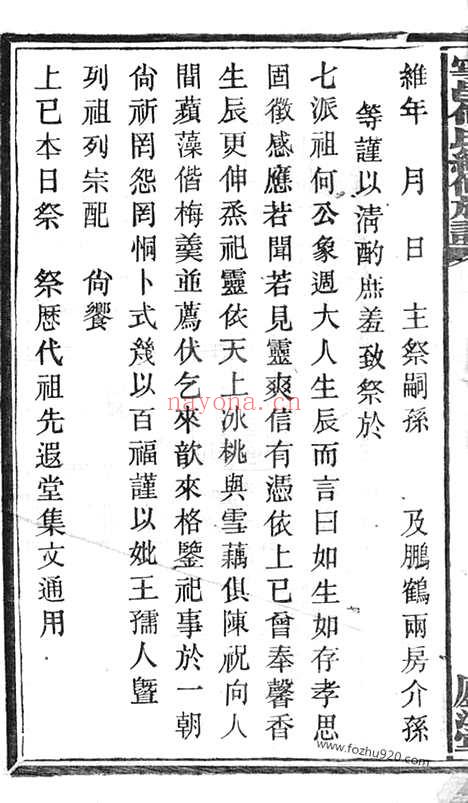 維年　月　日　主祭嗣孫　及鵬鶴兩房介孫
等謹以清酌庶羞致祭於
七派祖何公象週大人生辰而言曰如生如存孝思
固徵感應若聞若見靈爽信有憑依上巳曾奉馨香
生辰更伸烝祀靈依天上冰桃與雪藕俱陳祝向人
間蘋藻偕梅羹並薦伏乞來歆來格鑒祀事於一朝
尙祈罔怨罔恫卜式幾以百福謹以妣王孺人曁
列祖列宗配　尙饗
上巳本日祭　祭歷代祖先遐堂集文通用
nayona.cn
www.fozhu920.com